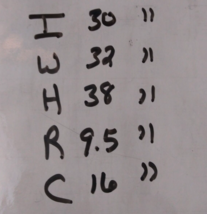 I 30 "
W 32 "
H 38 "
R 9.5 "
C 16 "